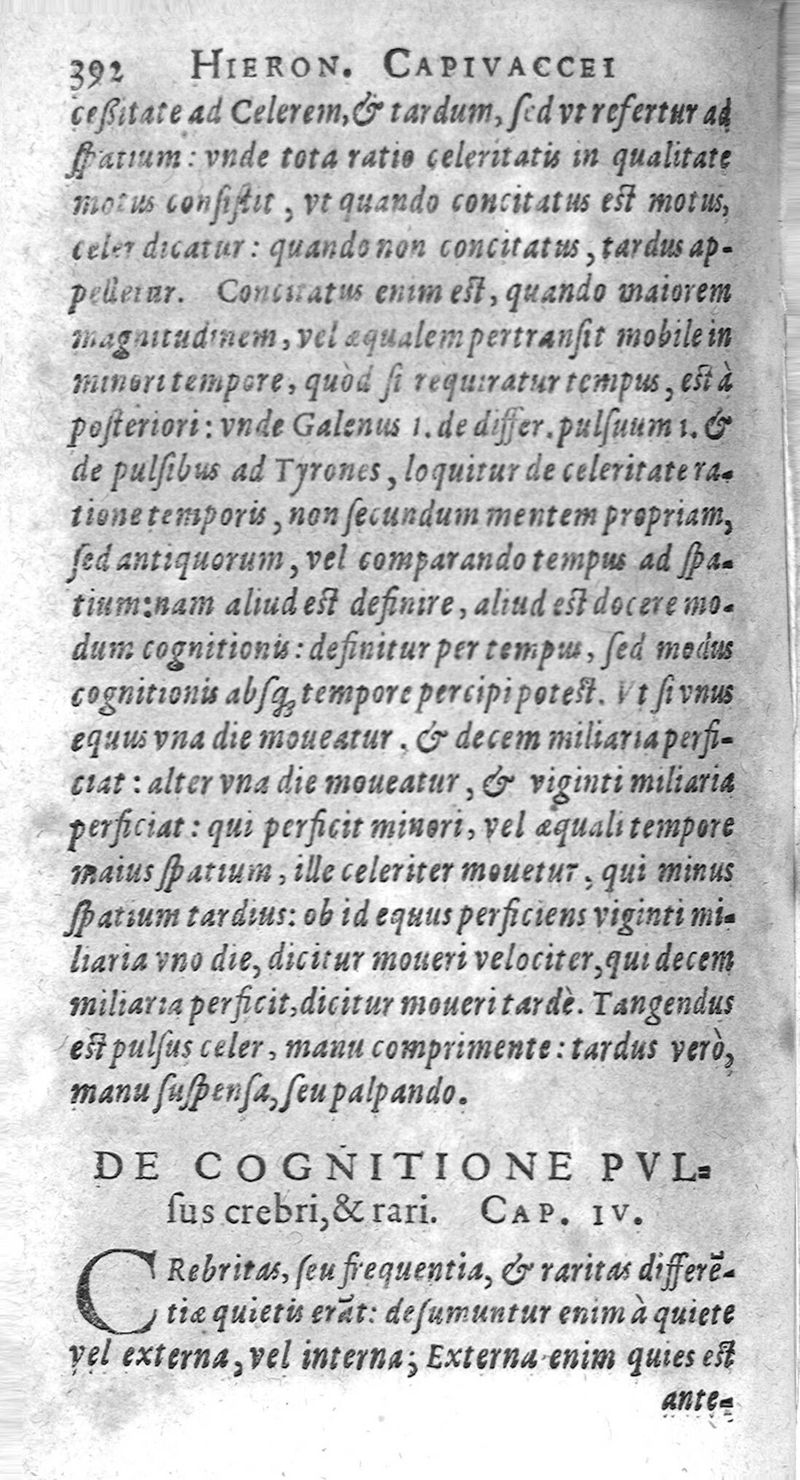 392 HIERON. CAPIVACCEI
ceßitate ad Celerem, & tardum, ſed vt refertur ad
ſpatium: vnde tota ratio celeritatis in qualitate
motus conſiſtit, vt quando concitatus est motus,
celer dicatur: quando non concitatus, tardus ap-
pelletur. Concitatus enim est, quando maiorem
magnitudinem, vel æqualem pertranſit mobile in
minori tempore, quòd ſi requiratur tempus, est à
poſteriori: vnde Galenus 1. de differ. pulſuum 1. &
de pulſibus ad Tyrones, loquitur de celeritate ra-
tione temporis, non ſecundum mentem propriam,
ſed antiquorum, vel comparando tempus ad ſpa-
tium: nam aliud est definire, aliud est docere mo-
dum cognitionis: definitur per tempus, ſed modus
cognitionis abſq; tempore percipi potest. Vt ſi vnus
equus vna die moueatur, & decem miliaria perfi-
ciat: alter vna die moueatur, & viginti miliaria
perficiat: qui perficit minori, vel æquali tempore
maius ſpatium, ille celeriter mouetur, qui minus
ſpatium tardius: ob id equus perficiens viginti mi-
liaria vno die, dicitur moueri velociter, qui decem
miliaria perficit, dicitur moueri tardè. Tangendus
est pulſus celer, manu comprimente: tardus verò,
manu ſuſpenſa, ſeu palpando.
DE COGNITIONE PVL-
ſus crebri, & rari. CAP. IV.
CRebritas, ſeu frequentia, & raritas differẽ-
tiæ quietis erãt: deſumuntur enim à quiete
vel externa, vel interna; Externa enim quies est
ante-